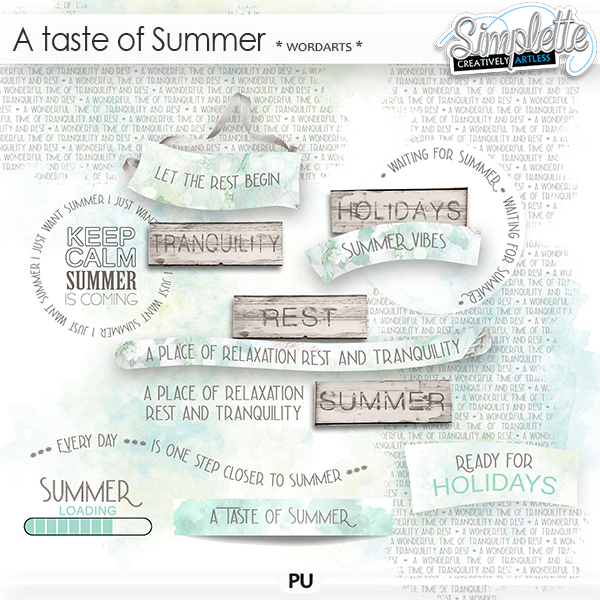 A taste of Summer * WORDARTS *
Simplette
CREATIVELY ARTLESS
A WONDERFUL TIME OF TRANQUILITY AND REST
LET THE REST BEGIN
WAITING FOR SUMMER • WAITING FOR SUMMER •
HOLIDAYS
SUMMER VIBES
I JUST WANT SUMMER I JUST WANT SUMMER I JUST WANT SUMMER I JUST WANT SUMMER
KEEP
CALM
SUMMER
IS COMING
TRANQUILITY
REST
A PLACE OF RELAXATION REST AND TRANQUILITY
A PLACE OF RELAXATION
REST AND TRANQUILITY
SUMMER
EVERY DAY IS ONE STEP CLOSER TO SUMMER
READY FOR
HOLIDAYS
SUMMER
LOADING
A TASTE OF SUMMER
PU